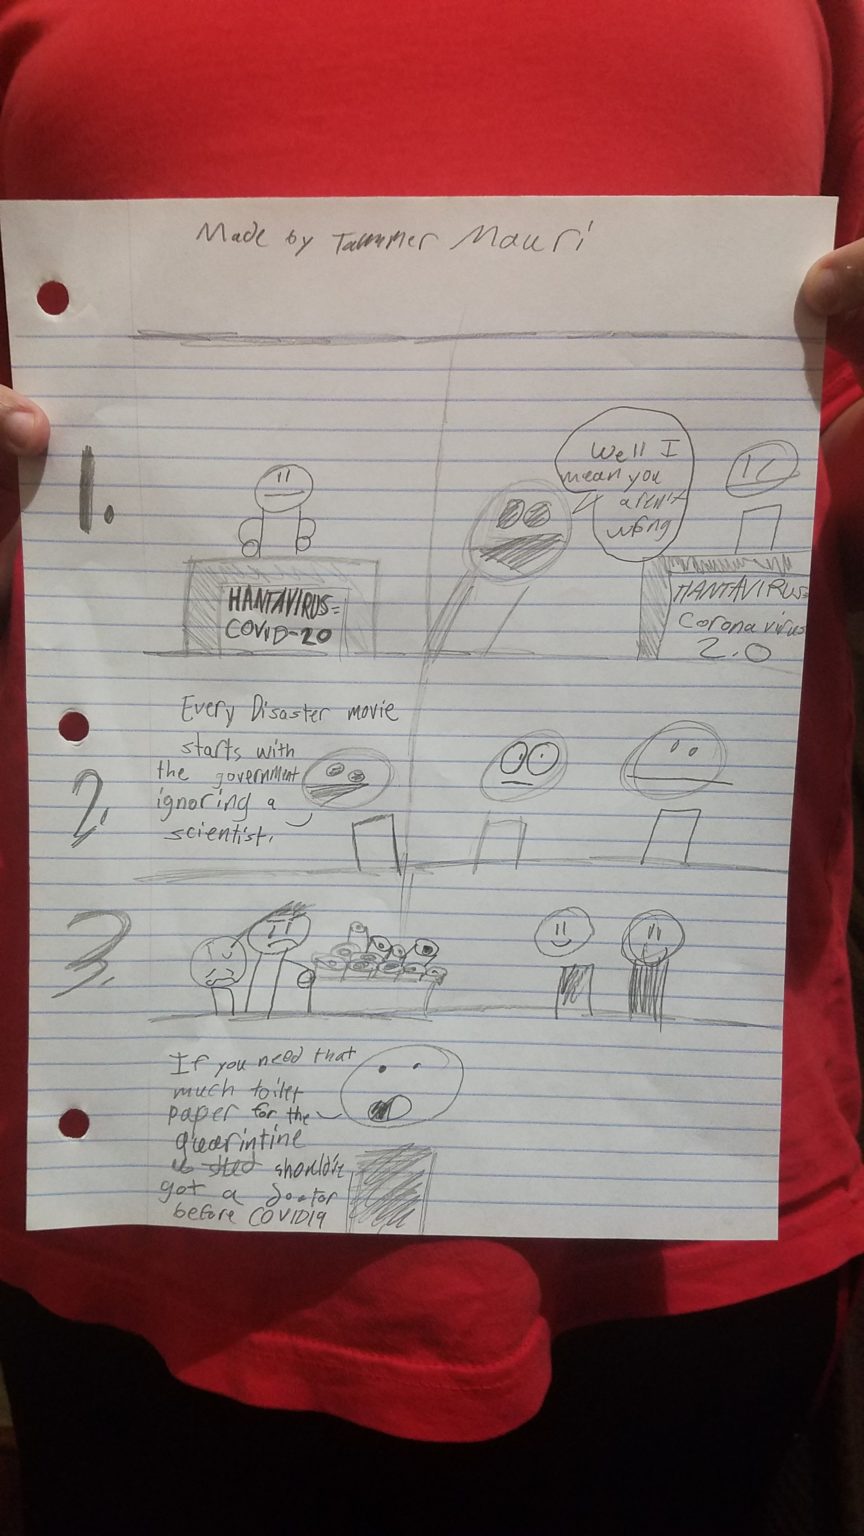 Made by Tammer Mauri
1.
HANTAVIRUS=
COVID-20
Well I
mean you
aren't
wrong
HANTAVIRUS=
Corona virus
2.0
2.
Every Disaster movie
starts with
the government
ignoring a
scientist.
3.
If you need that
much toilet
paper for the
quarintine
shouldv
got a doctor
before COVID19